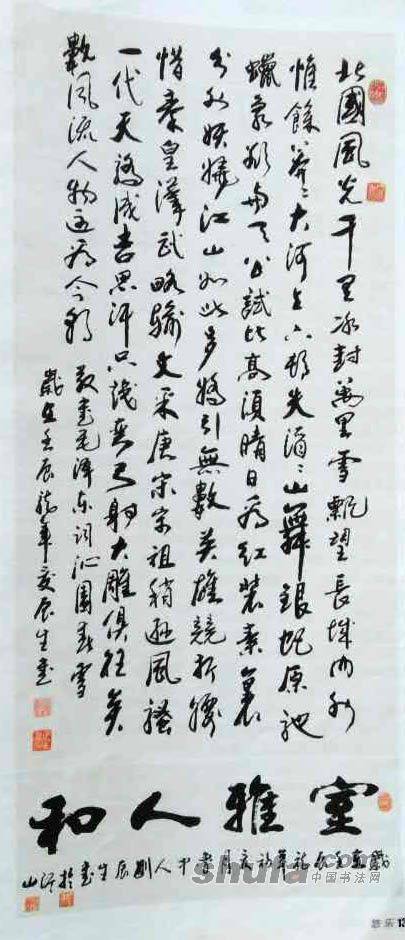 北國風光千里冰封萬里雪飄望長城內外
惟餘莽〻大河上下頓失滔〻山舞銀蛇原馳
蠟象欲與天公試比高須晴日为紅裝素裹
分外妖嬈江山如此多嬌引無數英雄競折腰
惜秦皇漢武略輸文采唐宗宋祖稍遜風騷
一代天驕成吉思汗只識彎弓射大雕俱往矣
數風流人物還看今朝
敬書毛澤东詞沁園春雪
歲在壬辰龍年辰生書
室雅人和
辰生書於
山
shufa.com
中国书法网
悠乐 13